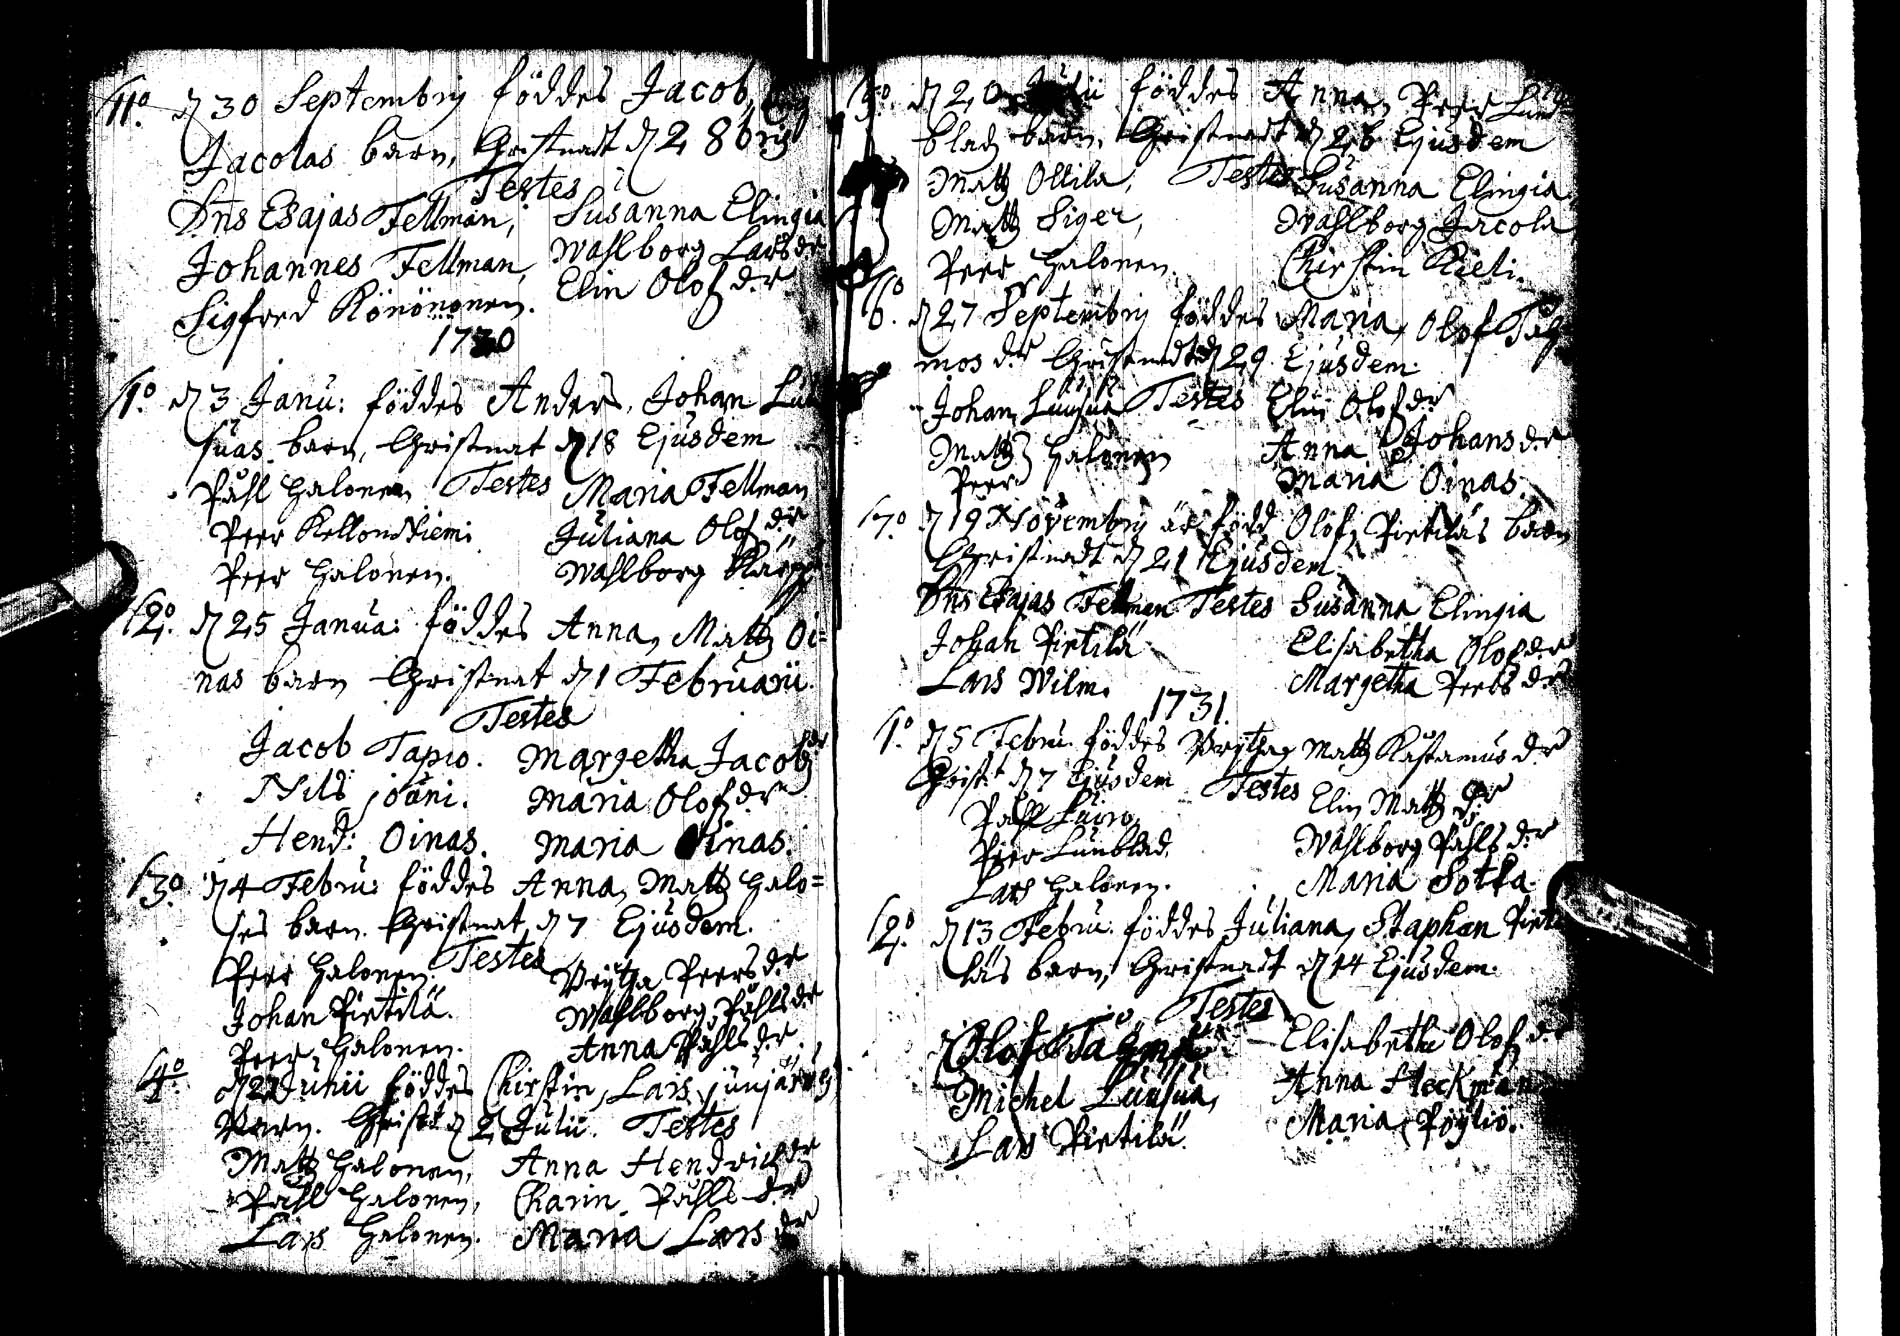 11.o d 30 Septembrij föddes Jacob,
Jacolas barn, Christnadt d 2 8bris
Testes
Dns Esajas Fellman, Susanna Elingia
Johannes Fellman, Wahlborg Lars dr
Sigfred Könönonen. Elin Olofz d.r
1730
1.o d 3 Janu: föddes Anders, Johan Lu
suas barn, Christnat d 18 Ejusdem
Påhl Halonen Testes Maria Fellman
Peer Kellonkiemi Juliana Olofz d:r
Peer Halonen. Wahlborg
2.o d 25 Janua: föddes Anna, Mattz Oi=
nas barn Christnat d 1 Februarii.
Testes
Jacob Tapio. Margetha Jacobz dr
Nils jouni. Maria Olofz d.r
Hend: Oinas. Maria Oinas.
3.o d 4 Febru: föddes Anna, Mattz Halo=
ses barn. Christnat d 7 Ejusdem.
Peer Halonen. Testes Brijtha Peers d.r
Johan Pietilä. Wahlborg Påhls dr
Peer Halonen. Anna Påhls d.r
4.o d 22 Junii föddes Chirstin, Lars junjärfz
Barn. Christ.t d 2 Julii. Testes
Mattz Halonen, Anna Hendrichz dr
Påhl Halonen, Charin Påhls d.r
Lars Halonen. Maria Lars dr
5.o d 20 föddes Anna, Peer Lund
bladz barn. Christnadt d 26 Ejusdem
Mattz Ollila, Testes Susanna Elingia
Mattz Siger, Wahlborg Jacola
Peer Halonen. Chirstin Kieli.
6.o d 27 Septembrij föddes Maria, Olof Tåg
mos d.r Christnadt d 29 Ejusdem.
Johan Luusua Testes Elin Olofz dr
Mattz Halonen Anna Johans d.r
Peer Maria Oinas.
7.o d 19 Novembrij är född Olof, Pietiläs barn
Christnadt d 21 Ejusdem.
Dns Esajas Fellman Testes Susanna Elingia
Johan Pietilä Elisabetha Olofz d.r
Lars Wilm. Margetha Peers d.r
1731.
1.o d 5 Febru. föddes Brijtha, Mattz Kastamus d.r
Christ.t d 7 Ejusdem Testes Elin Mattz dr
Påhl Luiro,
Peer Lunblad. Wahlborg Påhls d.r
Lars Halonen. Maria Sotka
2.o d 13 Febru: föddes Juliana, Staphan Pieti
läs barn, Christnadt d 14 Ejusdem.
Testes
Olof Tågmo Elisabetha Olofz d.r
Michel Luusua, Anna Heckman
Lars Pietilä. Maria Pöyliö.